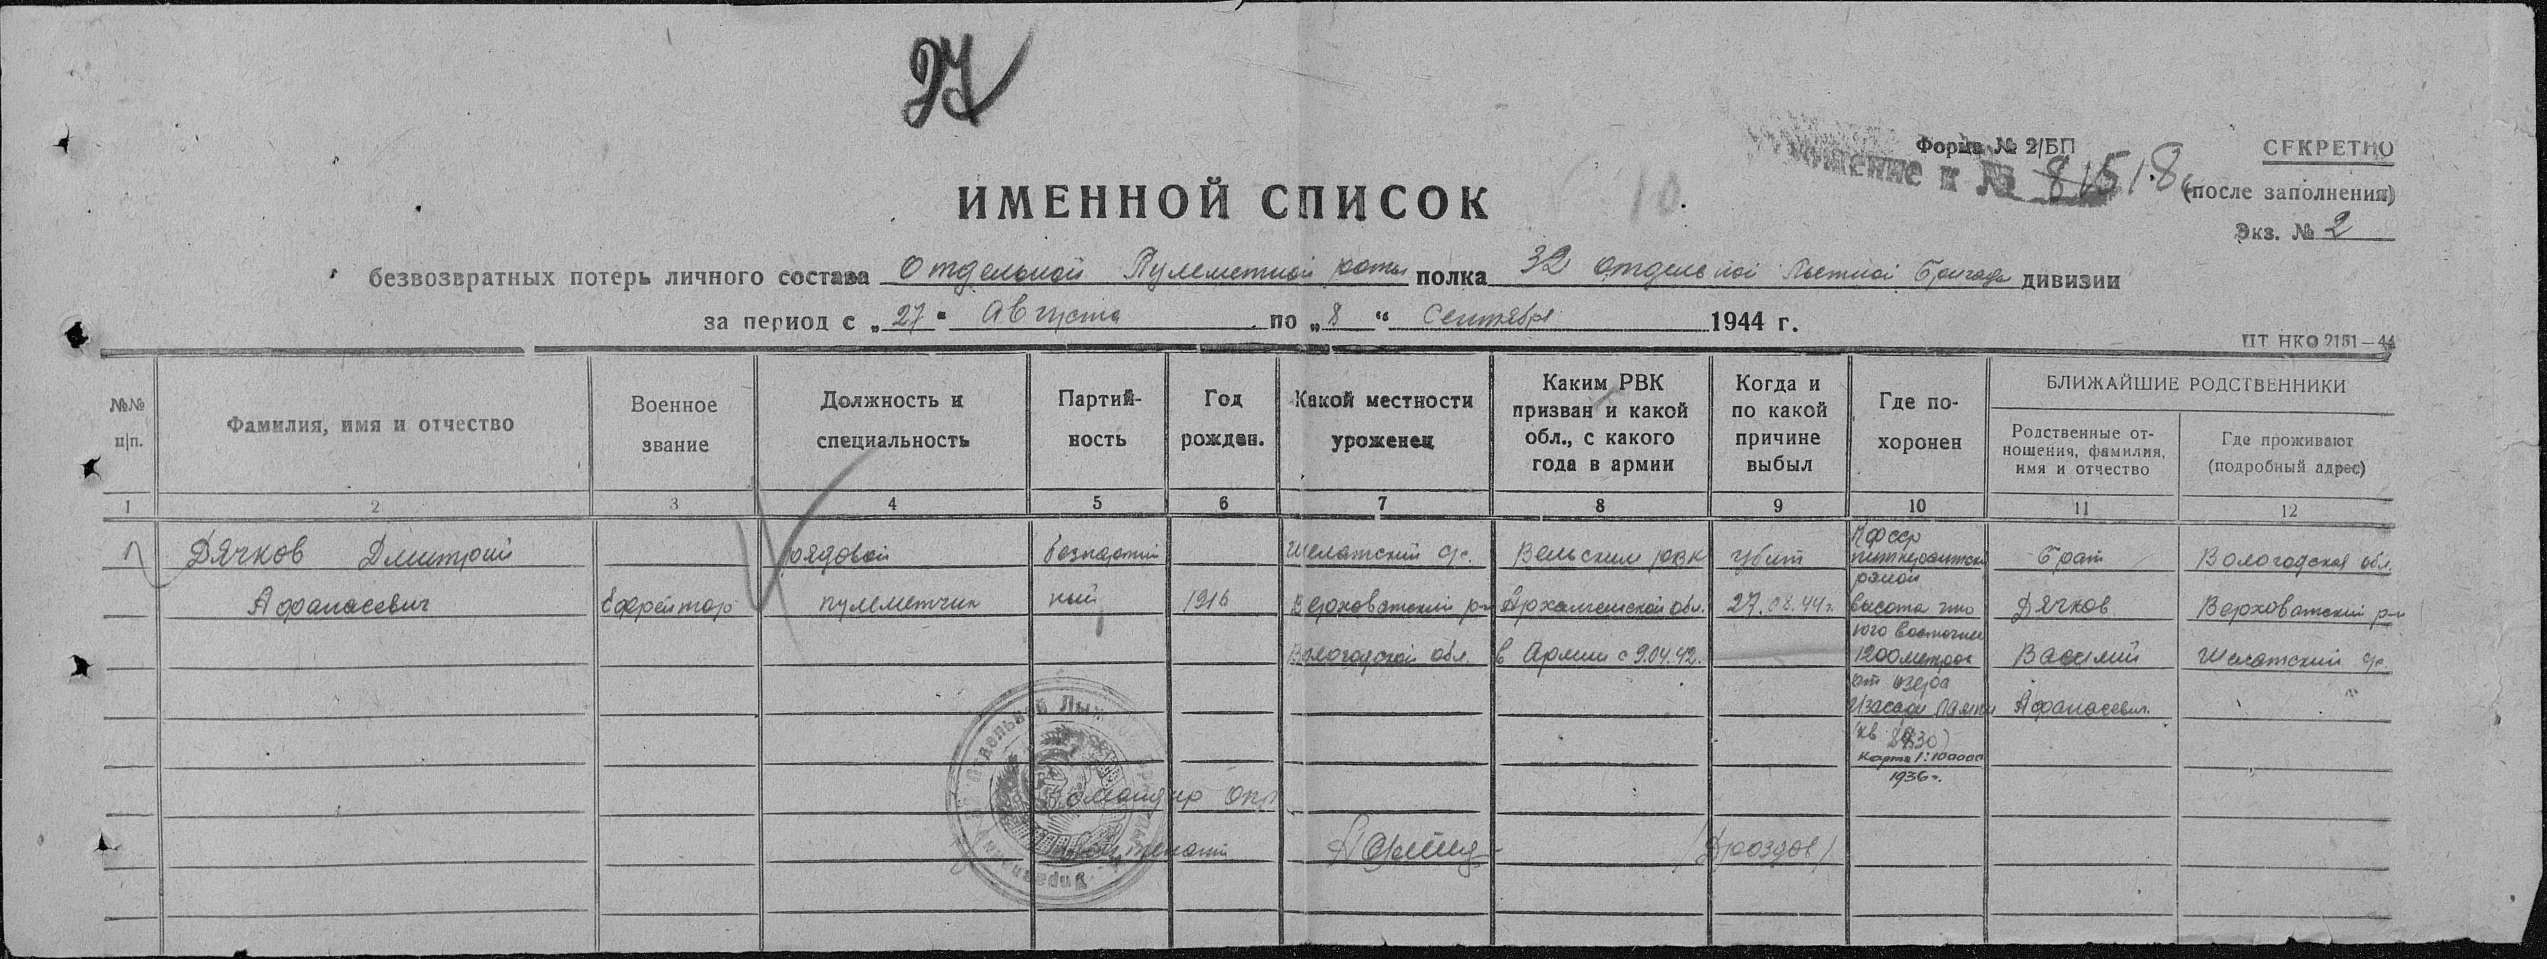 27
Форма № 2/БП
СЕКРЕТНО
к № 81518
(после заполнения)
Экз. № 2
10
ИМЕННОЙ СПИСОК
безвозвратных потерь личного состава Отдельной Пулеметной роты полка 32 отдельной Лыжной Бригады дивизии
за период с „27“ Августа по „8“ Сентября 1944 г.
ПТ НКО 2151—44
№№ п/п.
Фамилия, имя и отчество
Военное звание
Должность и специальность
Партий-
ность
Год рожден.
Какой местности уроженец
Каким РВК
призван и какой
обл., с какого
года в армии
Когда и
по какой
причине
выбыл
Где по-
хоронен
БЛИЖАЙШИЕ РОДСТВЕННИКИ
Родственные от-
ношения, фамилия,
имя и отчество
Где проживают
(подробный адрес)
1 2 3 4 5 6 7 8 9 10 11 12
Дячков Дмитрий
Афанасевич
Ефрейтор
рядовой
пулеметчик
безпартий
ный
1916
Шелатский с/с.
Верховатский р-н
Вологодской обл.
Вельским рвк
Архангельской обл.
в Армии с 9.04.42.
убит
27.08.44 г.
КФССР
район
высота что
юго восточнее
1200 метров
от озера
кв
карта 1:100000
1936 г.
Брат
Дячков
Василий
Афанасевич.
Вологодская обл.
Верховатский р-н
Шелатский с/с.
Отдельной Лыжной
Командир ОПР
Лейтенант
/Дроздов/